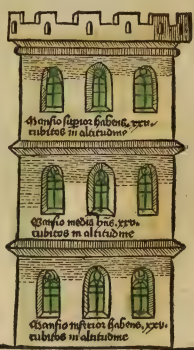 Mansio supior habens. xxv.
cubitos in altitudine
Mansio media hñs. xxv.
cubitos in altitudine
Mansio inferior habens. xxv.
cubitos in altitudine